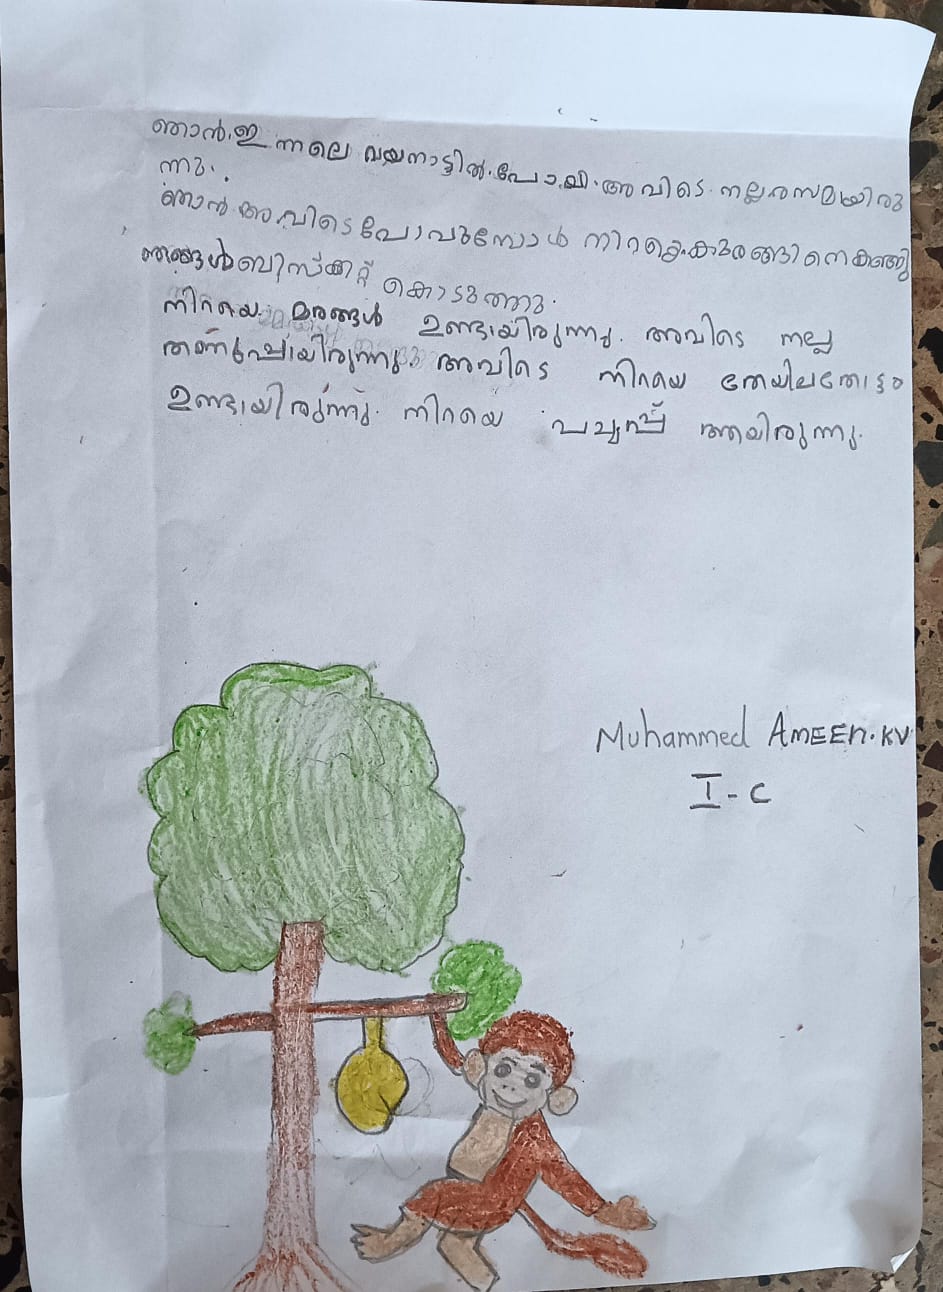 ഞാൻ ഇന്നലെ വയനാട്ടിൽ. പോയി. അവിടെ. നല്ല രസമായിരു
ന്നു.
ഞാൻ അവിടെ പോവുമ്പോൾ നിറയെ കുരങ്ങിനെ കണ്ടു
ഞങ്ങൾ ബിസ്ക്കറ്റ് കൊടുത്തു.
നിറയെ മരങ്ങൾ ഉണ്ടായിരുന്നു. അവിടെ നല്ല
തണുപ്പായിരുന്നു അവിടെ നിറയെ തേയിലതോട്ടം
ഉണ്ടായിരുന്നു. നിറയെ പച്ചപ്പ് ആയിരുന്നു.
Muhammed AMEEn.KV
I - C